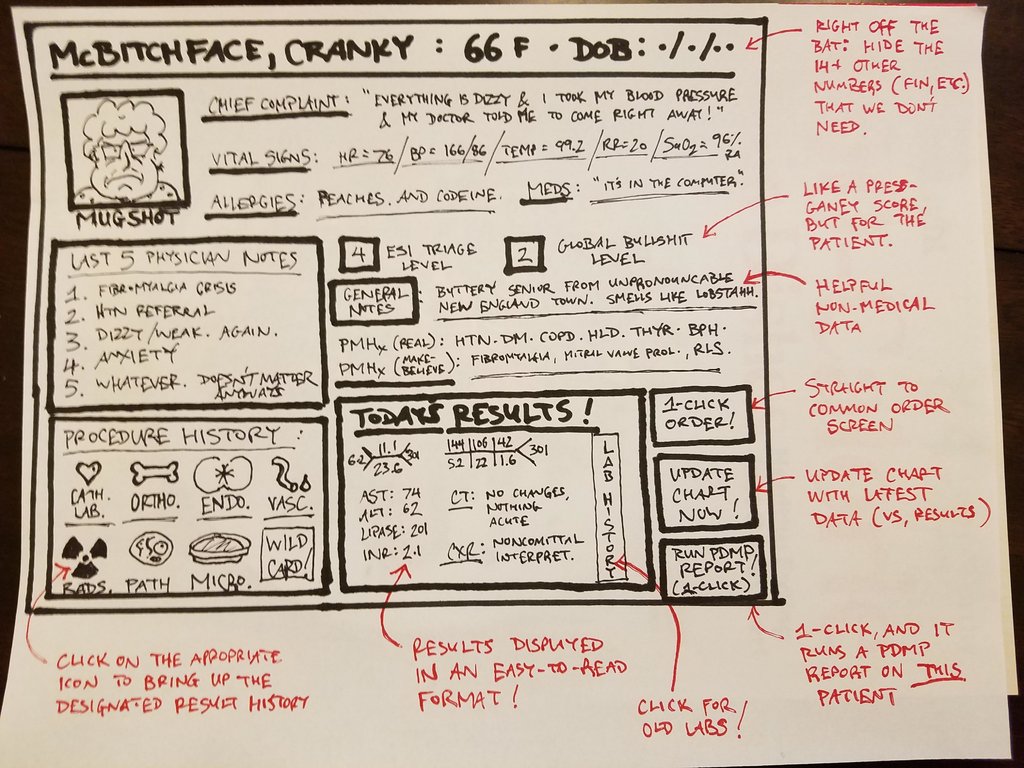 McBITCHFACE, CRANKY : 66 F • DOB: •/•/••
RIGHT OFF THE
BAT: HIDE THE
14+ OTHER
NUMBERS (FIN, ETC.)
THAT WE DON'T
NEED.
MUGSHOT
CHIEF COMPLAINT: "EVERYTHING IS DIZZY & I TOOK MY BLOOD PRESSURE
& MY DOCTOR TOLD ME TO COME RIGHT AWAY!"
VITAL SIGNS: HR=76 / BP=166/86 / TEMP=99.2 / RR=20 / SaO2=96%
RA
ALLERGIES: PEACHES. AND CODEINE. MEDS: "IT'S IN THE COMPUTER."
LIKE A PRESS-
GANEY SCORE,
BUT FOR THE
PATIENT.
4 ESI TRIAGE
LEVEL
2 GLOBAL BULLSHIT
LEVEL
GENERAL
NOTES
: BUTTERY SENIOR FROM UNPRONOUNCABLE
NEW ENGLAND TOWN. SMELLS LIKE LOBSTAHH.
HELPFUL
NON-MEDICAL
DATA
PMHx (REAL): HTN. DM. COPD. HLD. THYR. BPH.
PMHx (MAKE-
BELIEVE): FIBROMYALGIA, MITRAL VALVE PROL., RLS.
LAST 5 PHYSICIAN NOTES
1. FIBROMYALGIA CRISIS
2. HTN REFERRAL
3. DIZZY/WEAK. AGAIN.
4. ANXIETY
5. WHATEVER. DOESN'T MATTER
ANYWAYS
PROCEDURE HISTORY:
CATH.
LAB.
ORTHO.
ENDO.
VASC.
RADS.
PATH
MICRO.
WILD
CARD!
TODAY'S RESULTS!
6.2 11.1 301
23.6
144 106 42 301
5.2 22 1.6
AST: 74
ALT: 62
LIPASE: 201
INR: 2.1
CT: NO CHANGES,
NOTHING
ACUTE
CXR: NONCOMITTAL
INTERPRET.
LAB HISTORY
1-CLICK
ORDER!
UPDATE
CHART
NOW!
RUN PDMP
REPORT!
(1-CLICK)
STRAIGHT TO
COMMON ORDER
SCREEN
UPDATE CHART
WITH LATEST
DATA (VS, RESULTS)
1-CLICK, AND IT
RUNS A PDMP
REPORT ON THIS
PATIENT
CLICK ON THE APPROPRIATE
ICON TO BRING UP THE
DESIGNATED RESULT HISTORY
RESULTS DISPLAYED
IN AN EASY-TO-READ
FORMAT!
CLICK FOR
OLD LABS!